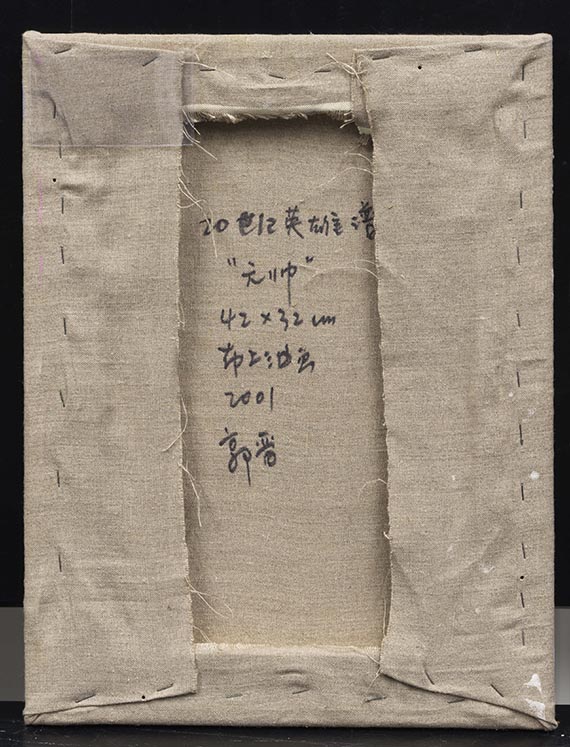 20世纪英雄谱
"元帅"
42 x 32 cm
布上油画
2001
郭晋